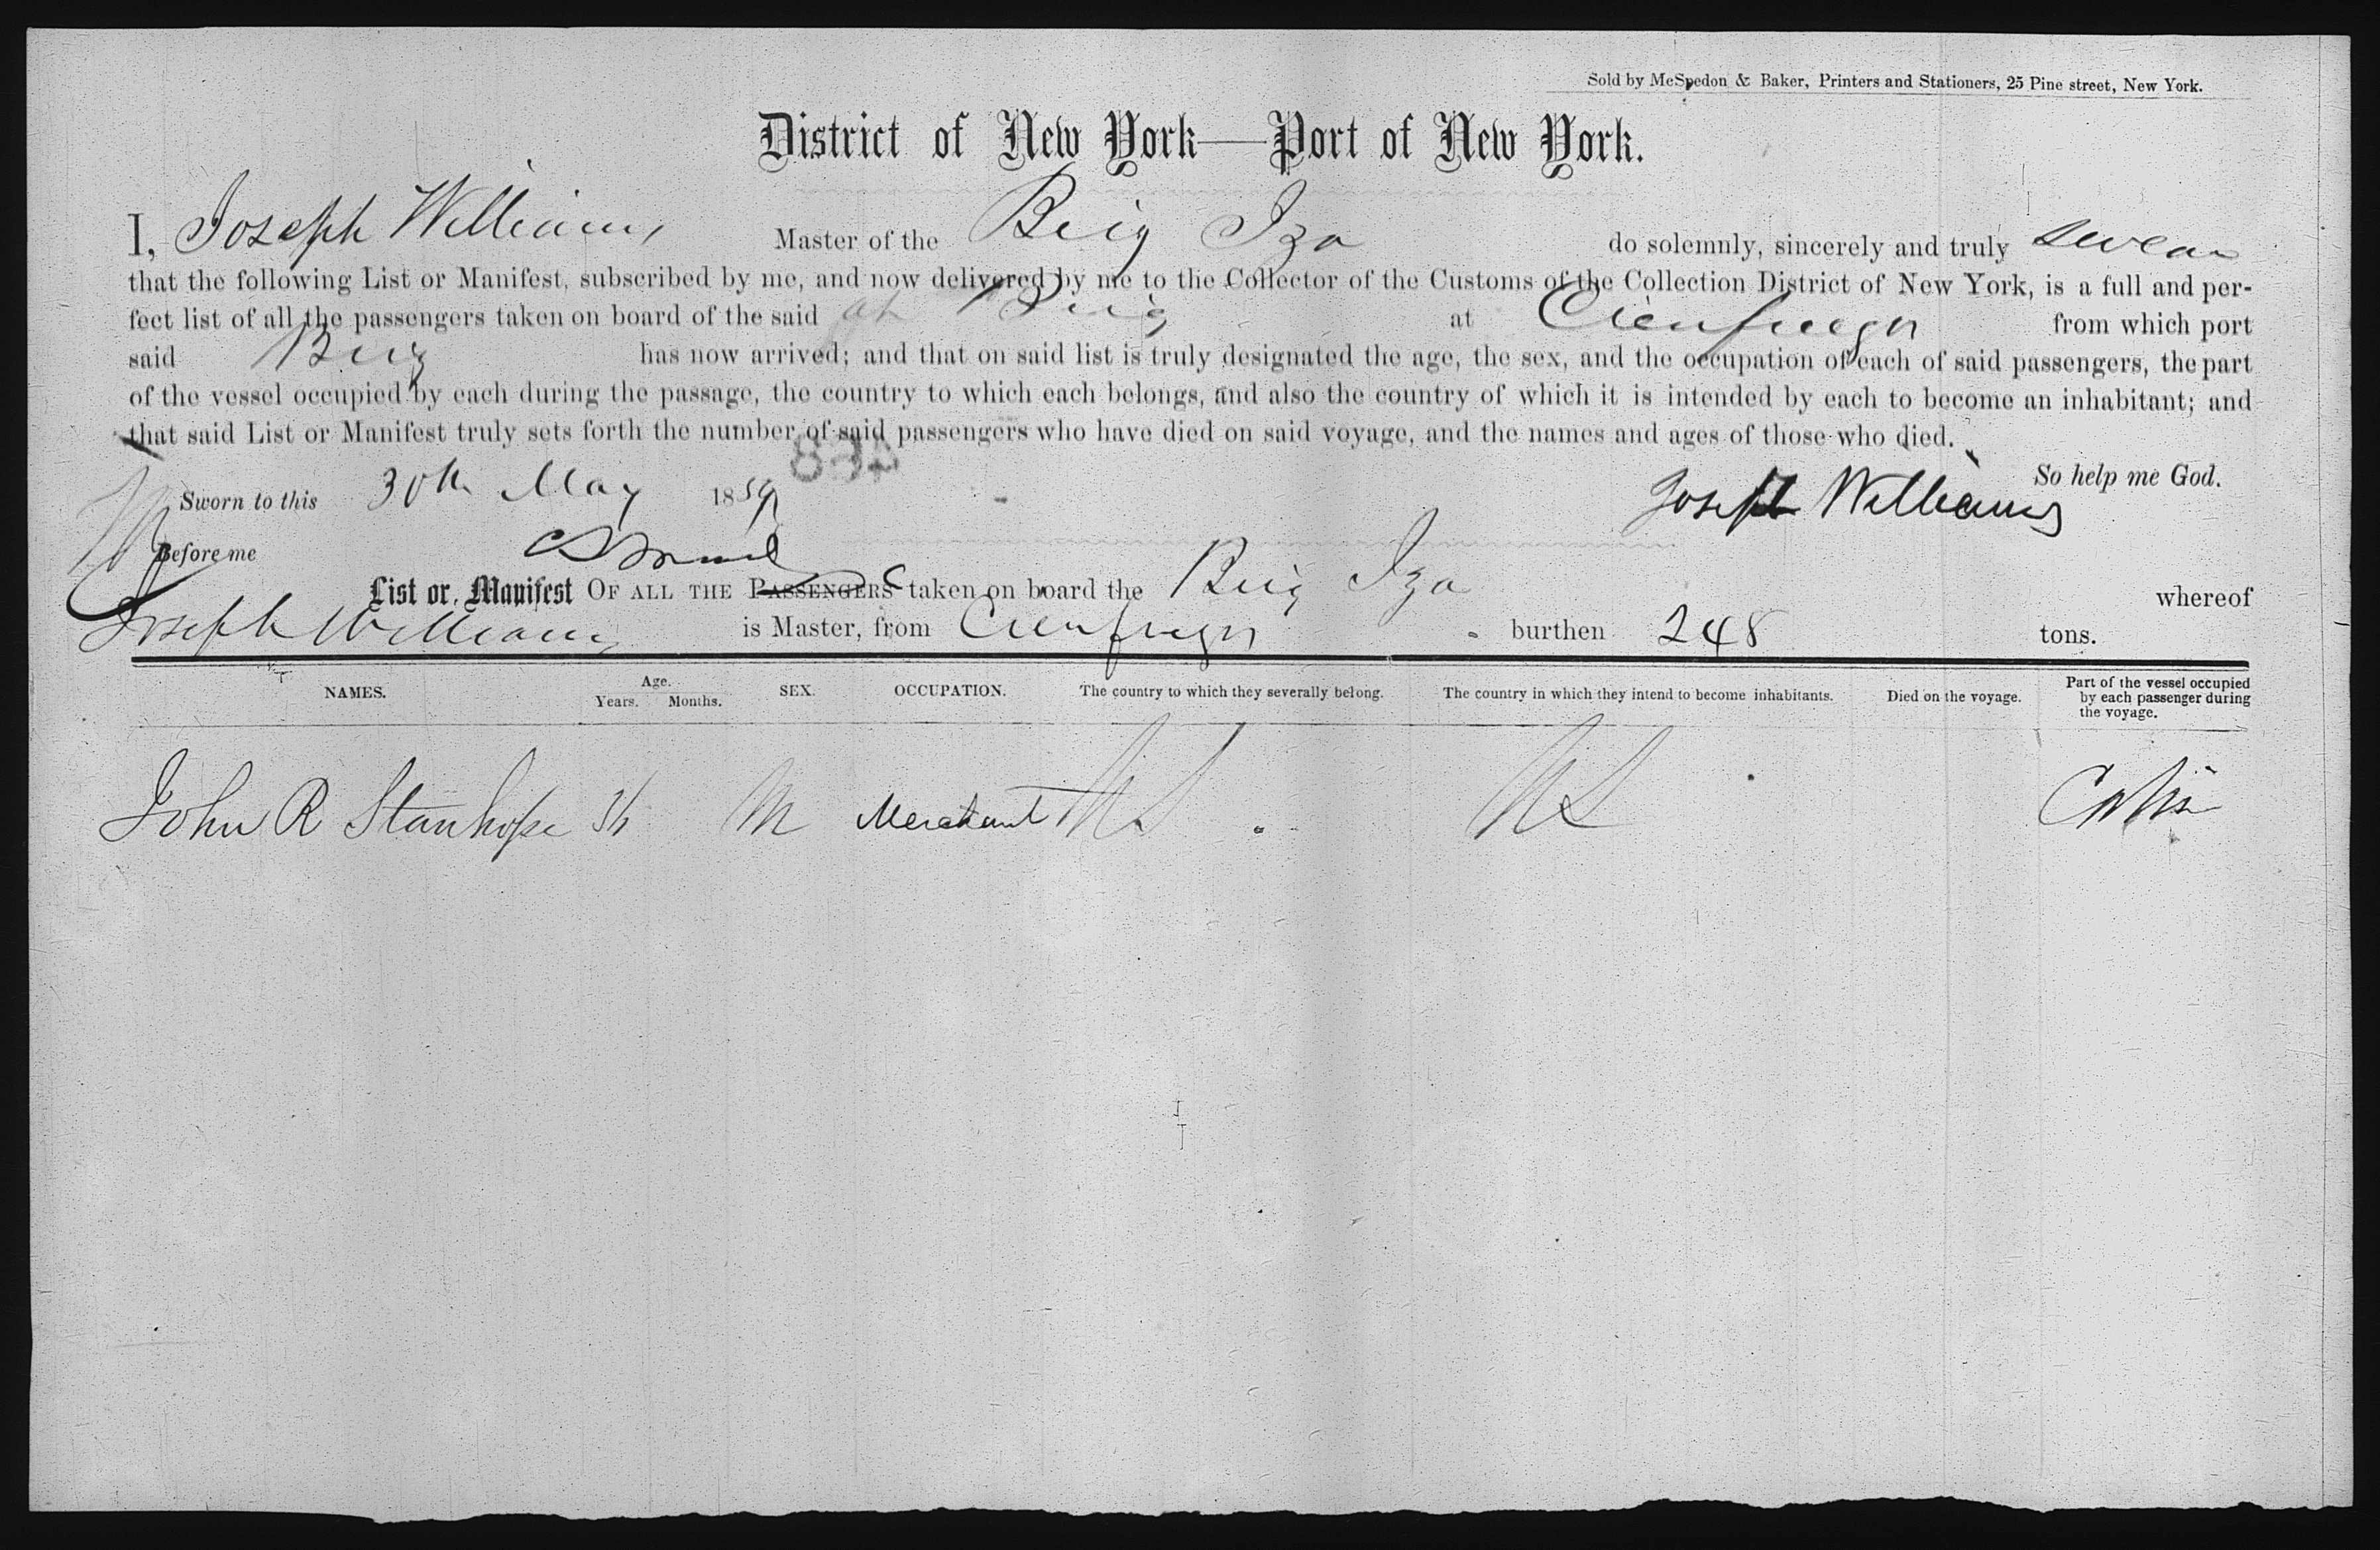 Sold by McSpedon & Baker, Printers and Stationers, 25 Pine street, New York.
District of New York—Port of New York.
I, Joseph Williams, Master of the Brig Iza do solemnly, sincerely and truly swear
that the following List or Manifest, subscribed by me, and now delivered by me to the Collector of the Customs of the Collection District of New York, is a full and per-
fect list of all the passengers taken on board of the said Brig at Cienfuegos from which port
said Brig has now arrived; and that on said list is truly designated the age, the sex, and the occupation of each of said passengers, the part
of the vessel occupied by each during the passage, the country to which each belongs, and also the country of which it is intended by each to become an inhabitant; and
that said List or Manifest truly sets forth the number of said passengers who have died on said voyage, and the names and ages of those who died.
So help me God.
Sworn to this 30th May 1859 Joseph Williams
Before me
List or Manifest OF ALL THE PASSENGERS taken on board the Brig Iza whereof
Joseph Williams is Master, from Cienfuegos burthen 248 tons.
NAMES. Age. Years. Months. SEX. OCCUPATION. The country to which they severally belong. The country in which they intend to become inhabitants. Died on the voyage. Part of the vessel occupied by each passenger during the voyage.
John R Stanhope M Merchant US US Cabin